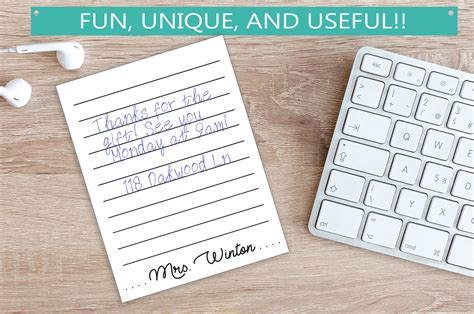 FUN, UNIQUE, AND USEFUL!!
Thanks for the
gift! See you
Monday at 9am!
118 Oakwood Ln
....Mrs. Winton....